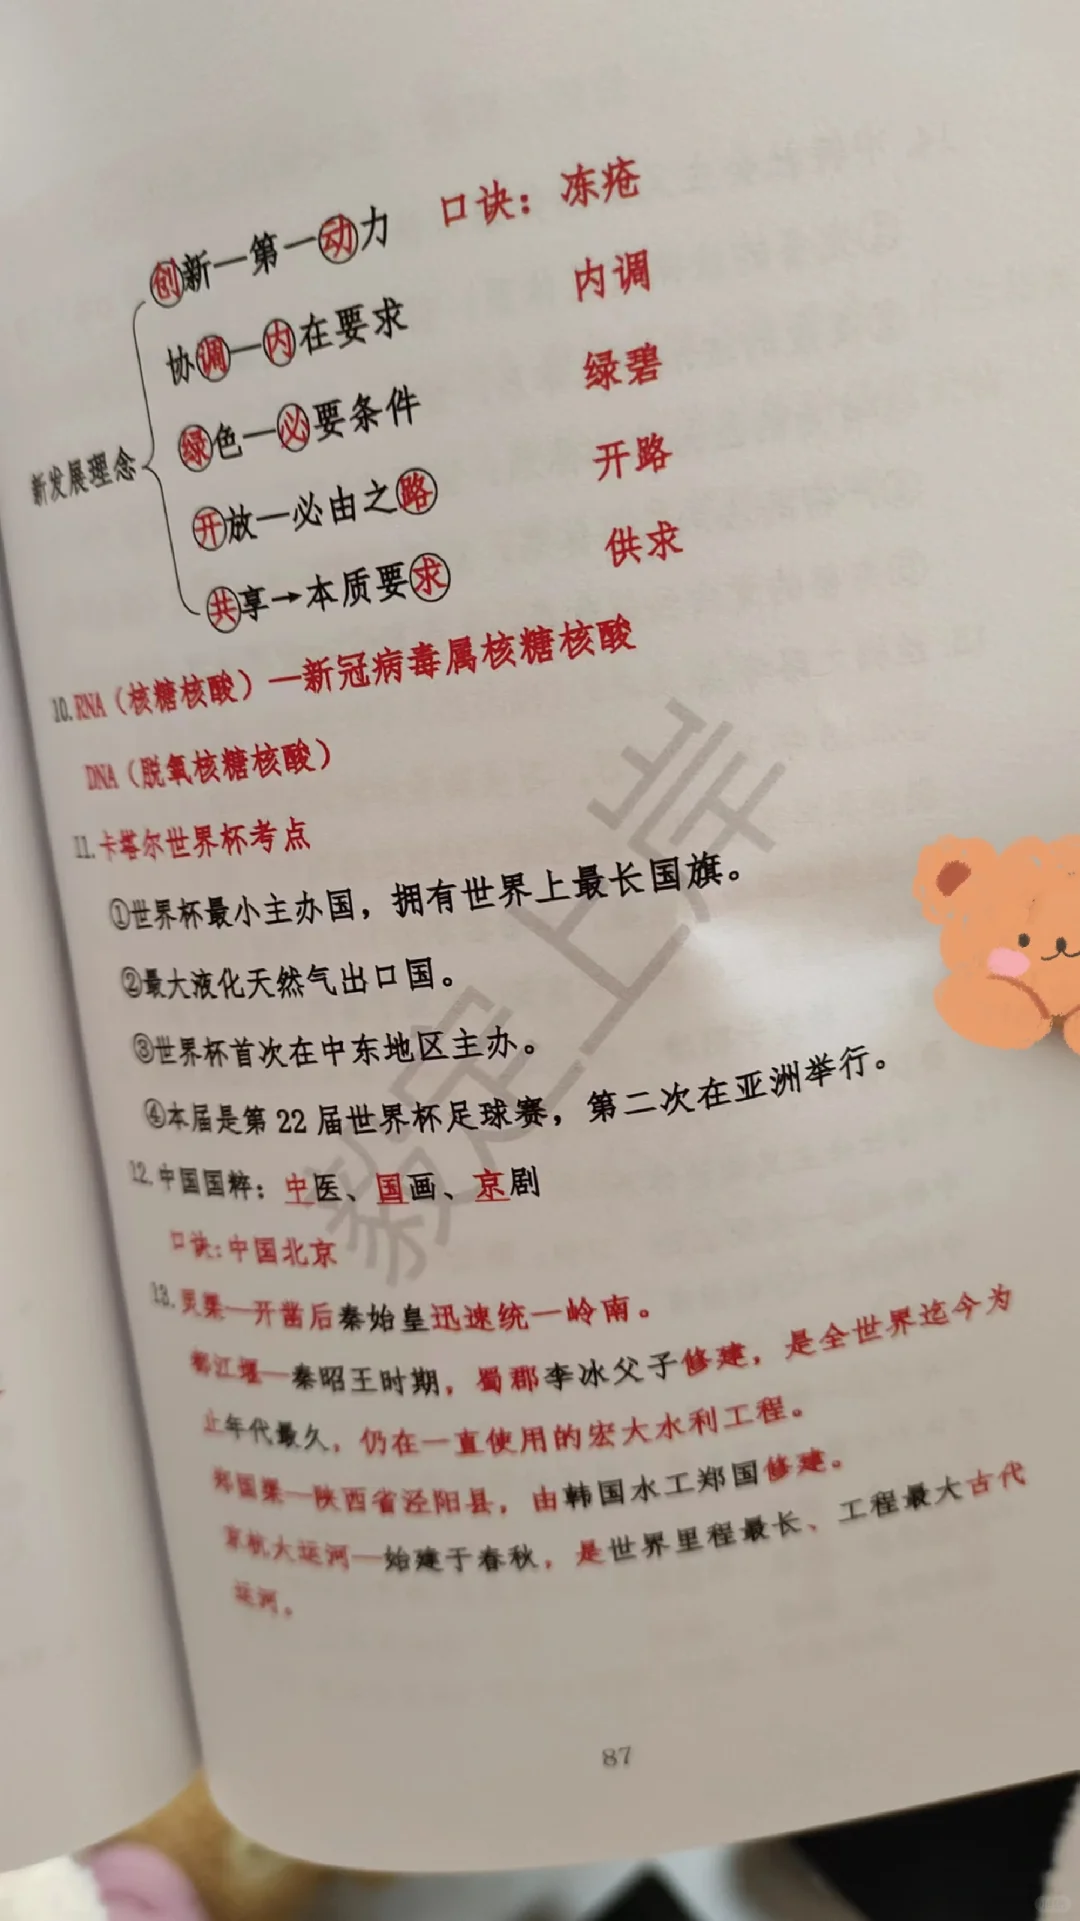 创新—第一动力 口诀：冻疮
协调—内在要求 内调
绿色—必要条件 绿碧
新发展理念
开放—必由之路 开路
共享→本质要求 供求
10.RNA（核糖核酸）—新冠病毒属核糖核酸
DNA（脱氧核糖核酸）
11.卡塔尔世界杯考点
①世界杯最小主办国，拥有世界上最长国旗。
②最大液化天然气出口国。
③世界杯首次在中东地区主办。
④本届是第22届世界杯足球赛，第二次在亚洲举行。
12.中国国粹：中医、国画、京剧
口诀：中国北京
13.灵渠—开凿后秦始皇迅速统一岭南。
都江堰—秦昭王时期，蜀郡李冰父子修建，是全世界迄今为
止年代最久，仍在一直使用的宏大水利工程。
郑国渠—陕西省泾阳县，由韩国水工郑国修建。
京杭大运河—始建于春秋，是世界里程最长、工程最大古代
运河。
87